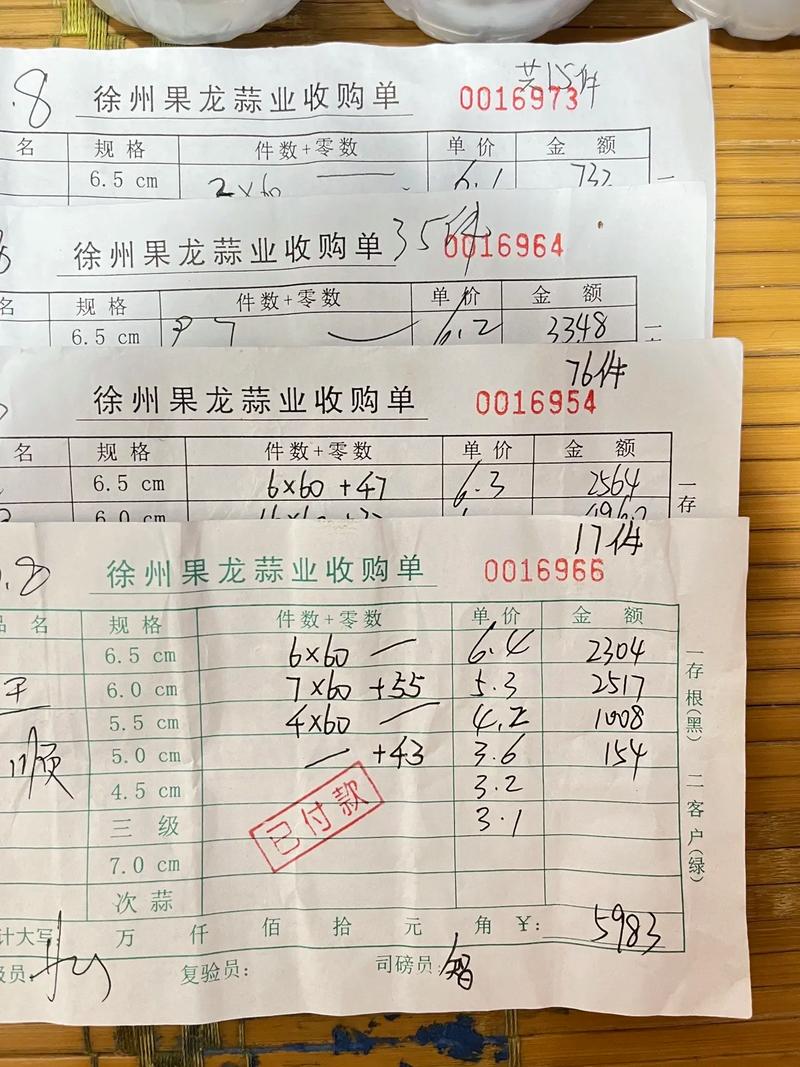 .8 徐州果龙蒜业收购单 0016973 共15件
名 规格 件数+零数 单价 金额
6.5 cm 2×60 — 6.1 732
徐州果龙蒜业收购单 35件 0016964
名 规格 件数+零数 单价 金额
6.5 cm 6.2 3348
76件
徐州果龙蒜业收购单 0016954
名 规格 件数+零数 单价 金额
6.5 cm 6×60 +47 6.3 2564
6.0 cm
17件
.8 徐州果龙蒜业收购单 0016966
品名 规格 件数+零数 单价 金额
6.5 cm 6×60 — 6.4 2304
6.0 cm 7×60 +55 5.3 2517
5.5 cm 4×60 — 4.2 1008
5.0 cm — +43 3.6 154
4.5 cm 3.2
三级 3.1
7.0 cm
次蒜
已付款
计大写 万 仟 佰 拾 元 角 ¥: 5983
级员: 复验员: 司磅员: 智
一存
一存根(黑) 二客户(绿)